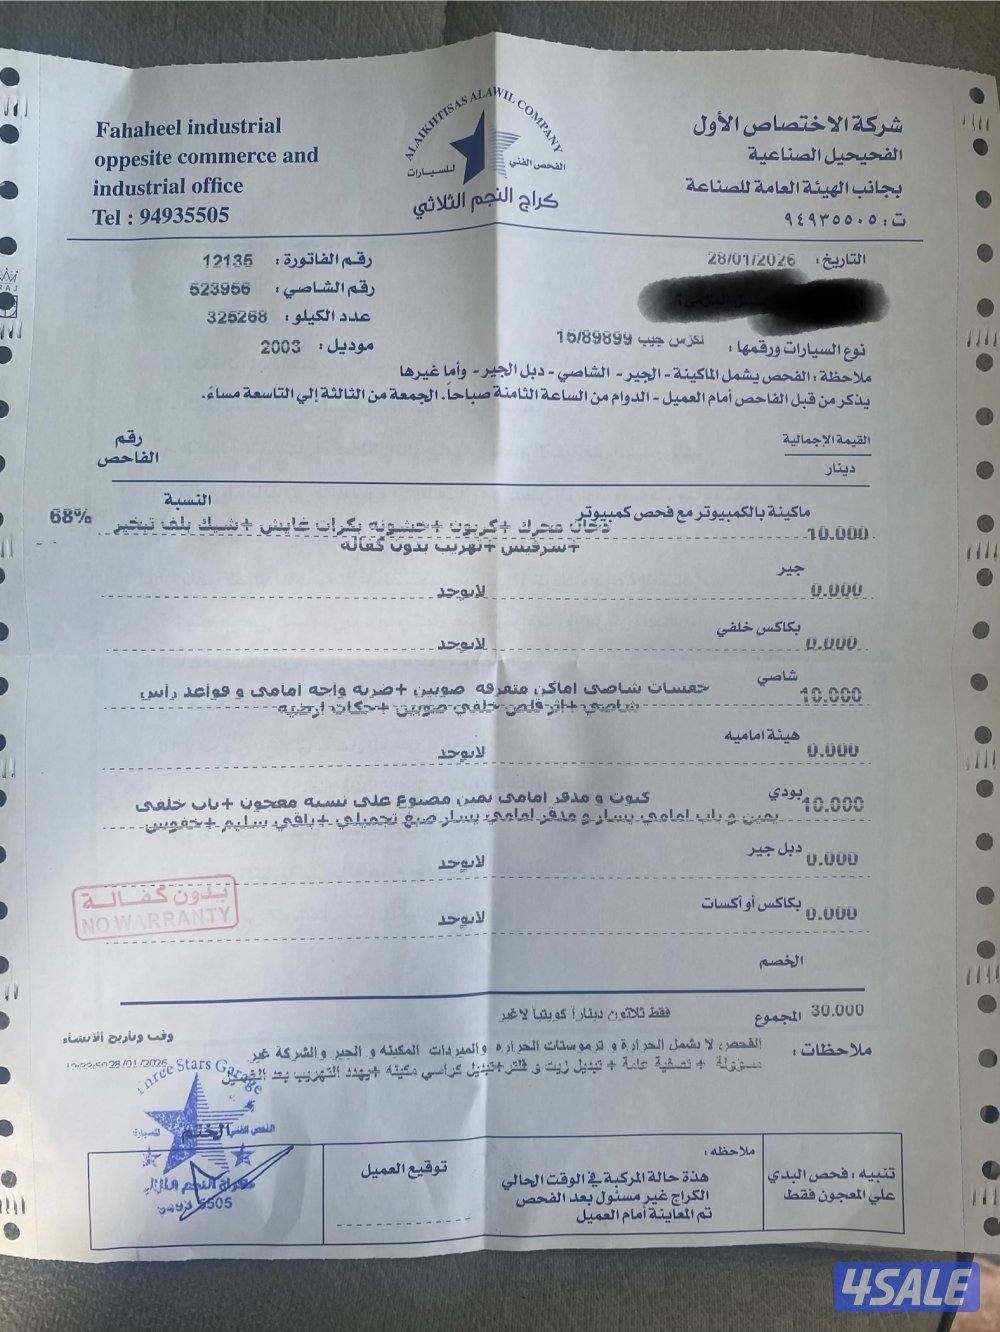 Fahaheel industrial
oppesite commerce and
industrial office
Tel : 94935505
ALAIKHTISAS ALAWIL COMPANY
الفحص الفني للسيارات
كراج النجم الثلاثي
شركة الاختصاص الأول
الفحيحيل الصناعية
بجانب الهيئة العامة للصناعة
ت : ٩٤٩٣٥٥٠٥
التاريخ : 28/01/2026
رقم الفاتورة : 12135
رقم الشاصي : 523956
عدد الكيلو : 325268
موديل : 2003
نوع السيارات ورقمها : لكزس جيب 15/89899
ملاحظة : الفحص يشمل الماكينة - الجير - الشاصي - دبل الجير - وأما غيرها
يذكر من قبل الفاحص أمام العميل - الدوام من الساعة الثامنة صباحاً. الجمعة من الثالثة إلي التاسعة مساءً.
القيمة الإجمالية
دينار
رقم
الفاحص
النسبة
68%
ماكينة بالكمبيوتر مع فحص كمبيوتر
10.000
دخان محرك +كربون +خشونه بكرات +شيك بلف تبخير
+سرفيس +تهريب بدون كفاله
جير
0.000 لايوجد
بكاكس خلفي
0.000 لايوجد
شاصي
10.000
خفسات شاصي اماكن متفرقه صوبين +ضربه واجه أمامي و قواعد رأس
شاصي +اثر قلص خلفي صوبين +حكات ارضيه
هيئة اماميه
0.000 لايوجد
بودي
10.000
كبوت و مدقر امامي يمين مصبوغ على نسبه معجون +باب خلفي
يمين و باب امامي يسار و مدقر امامي يسار صبغ تجميلي +باقي سليم +خفوس
دبل جير
0.000 لايوجد
بكاكس أو أكسات
0.000 لايوجد
بدون كفالة
NO WARRANTY
الخصم
المجموع 30.000
فقط ثلاثون ديناراً كويتياً لاغير
وقت وتاريخ الأنشاء
28/01/2026
ملاحظات :
الفحص لا يشمل الحرارة و ترموستات الحراره والمبردات المكينه و الجير والشركة غير
مسؤولة + تصفية عامة + تبديل زيت و فلتر+تبديل كراسي مكينه +يهدد التهريب بعد الغسيل
Three Stars Garage
الفحص الفني للسيارة
الختم
كراج النجم الثلاثي
توقيع العميل
ملاحظه :
هذة حالة المركبة في الوقت الحالي
الكراج غير مسئول بعد الفحص
تم المعاينة أمام العميل
تنبيه : فحص البدي
علي المعجون فقط
4SALE